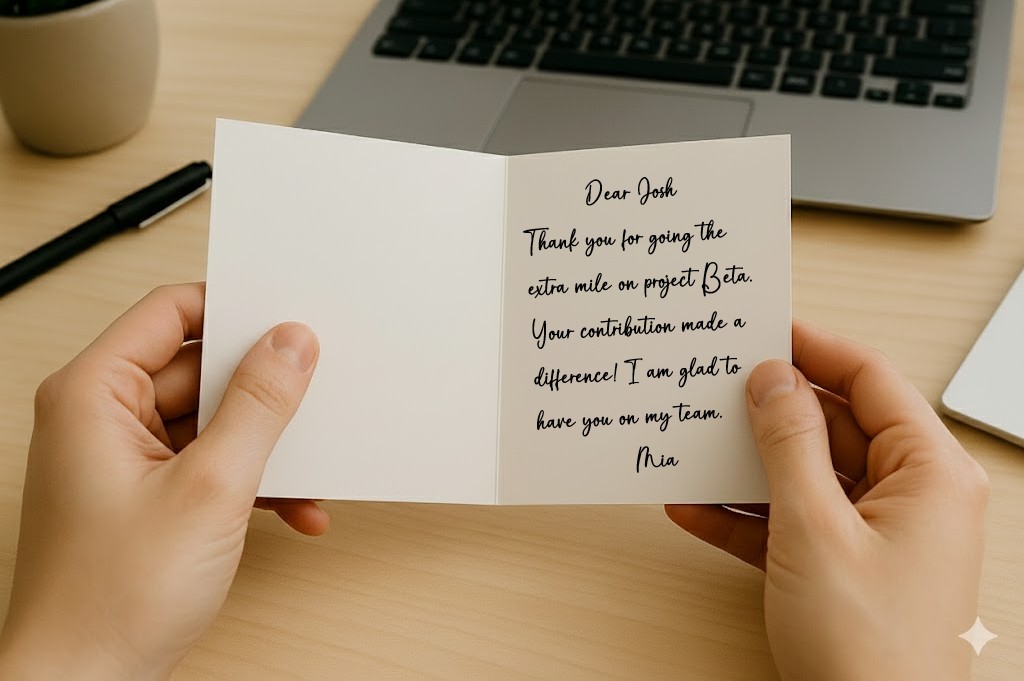 Dear Josh
Thank you for going the
extra mile on project Beta.
Your contribution made a
difference! I am glad to
have you on my team.
Mia